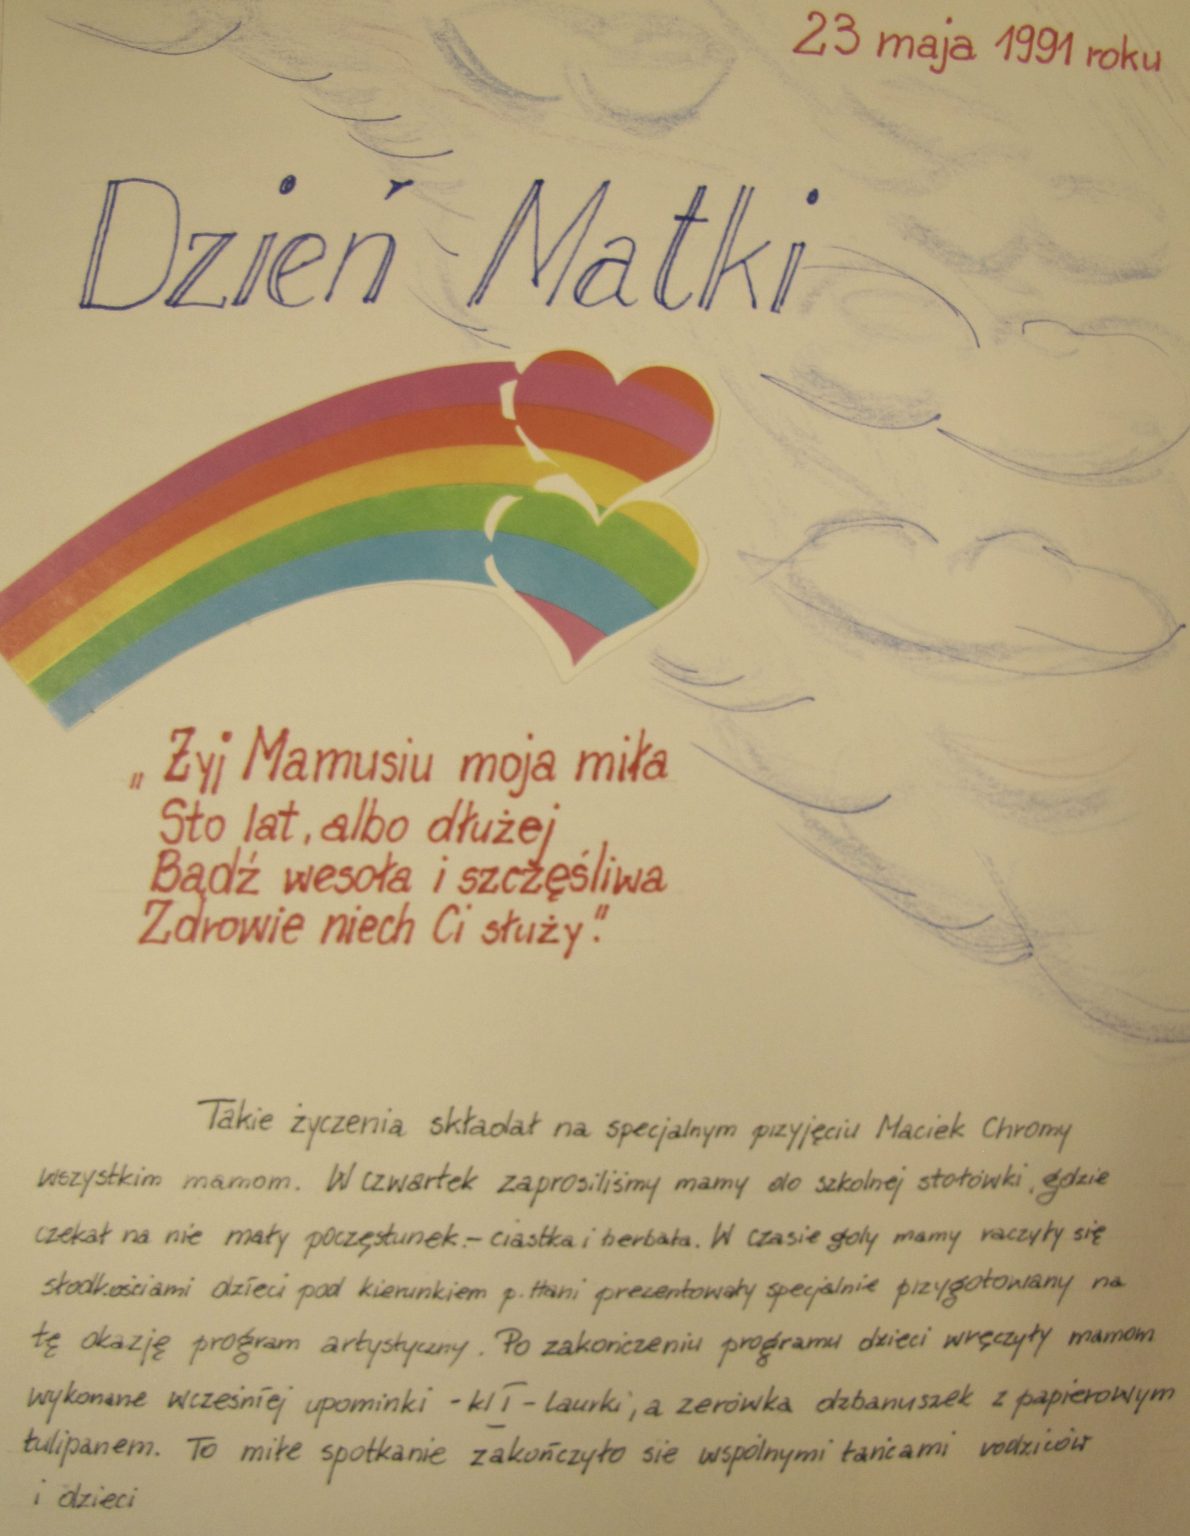 23 maja 1991 roku
Dzień Matki
„Żyj Mamusiu moja miła
Sto lat, albo dłużej
Bądź wesoła i szczęśliwa
Zdrowie niech Ci służy."
Takie życzenia składał na specjalnym przyjęciu Maciek Chromy
wszystkim mamom. W czwartek zaprosiliśmy mamy do szkolnej stołówki, gdzie
czekał na nie mały poczęstunek - ciastka i herbata. W czasie gdy mamy raczyły się
słodkościami dzieci pod kierunkiem p. Hani prezentowały specjalnie przygotowany na
tę okazję program artystyczny. Po zakończeniu programu dzieci wręczyły mamom
wykonane wcześniej upominki - kl I - laurki, a zerówka dzbanuszek z papierowym
tulipanem. To miłe spotkanie zakończyło sie wspólnymi tańcami rodziców
i dzieci